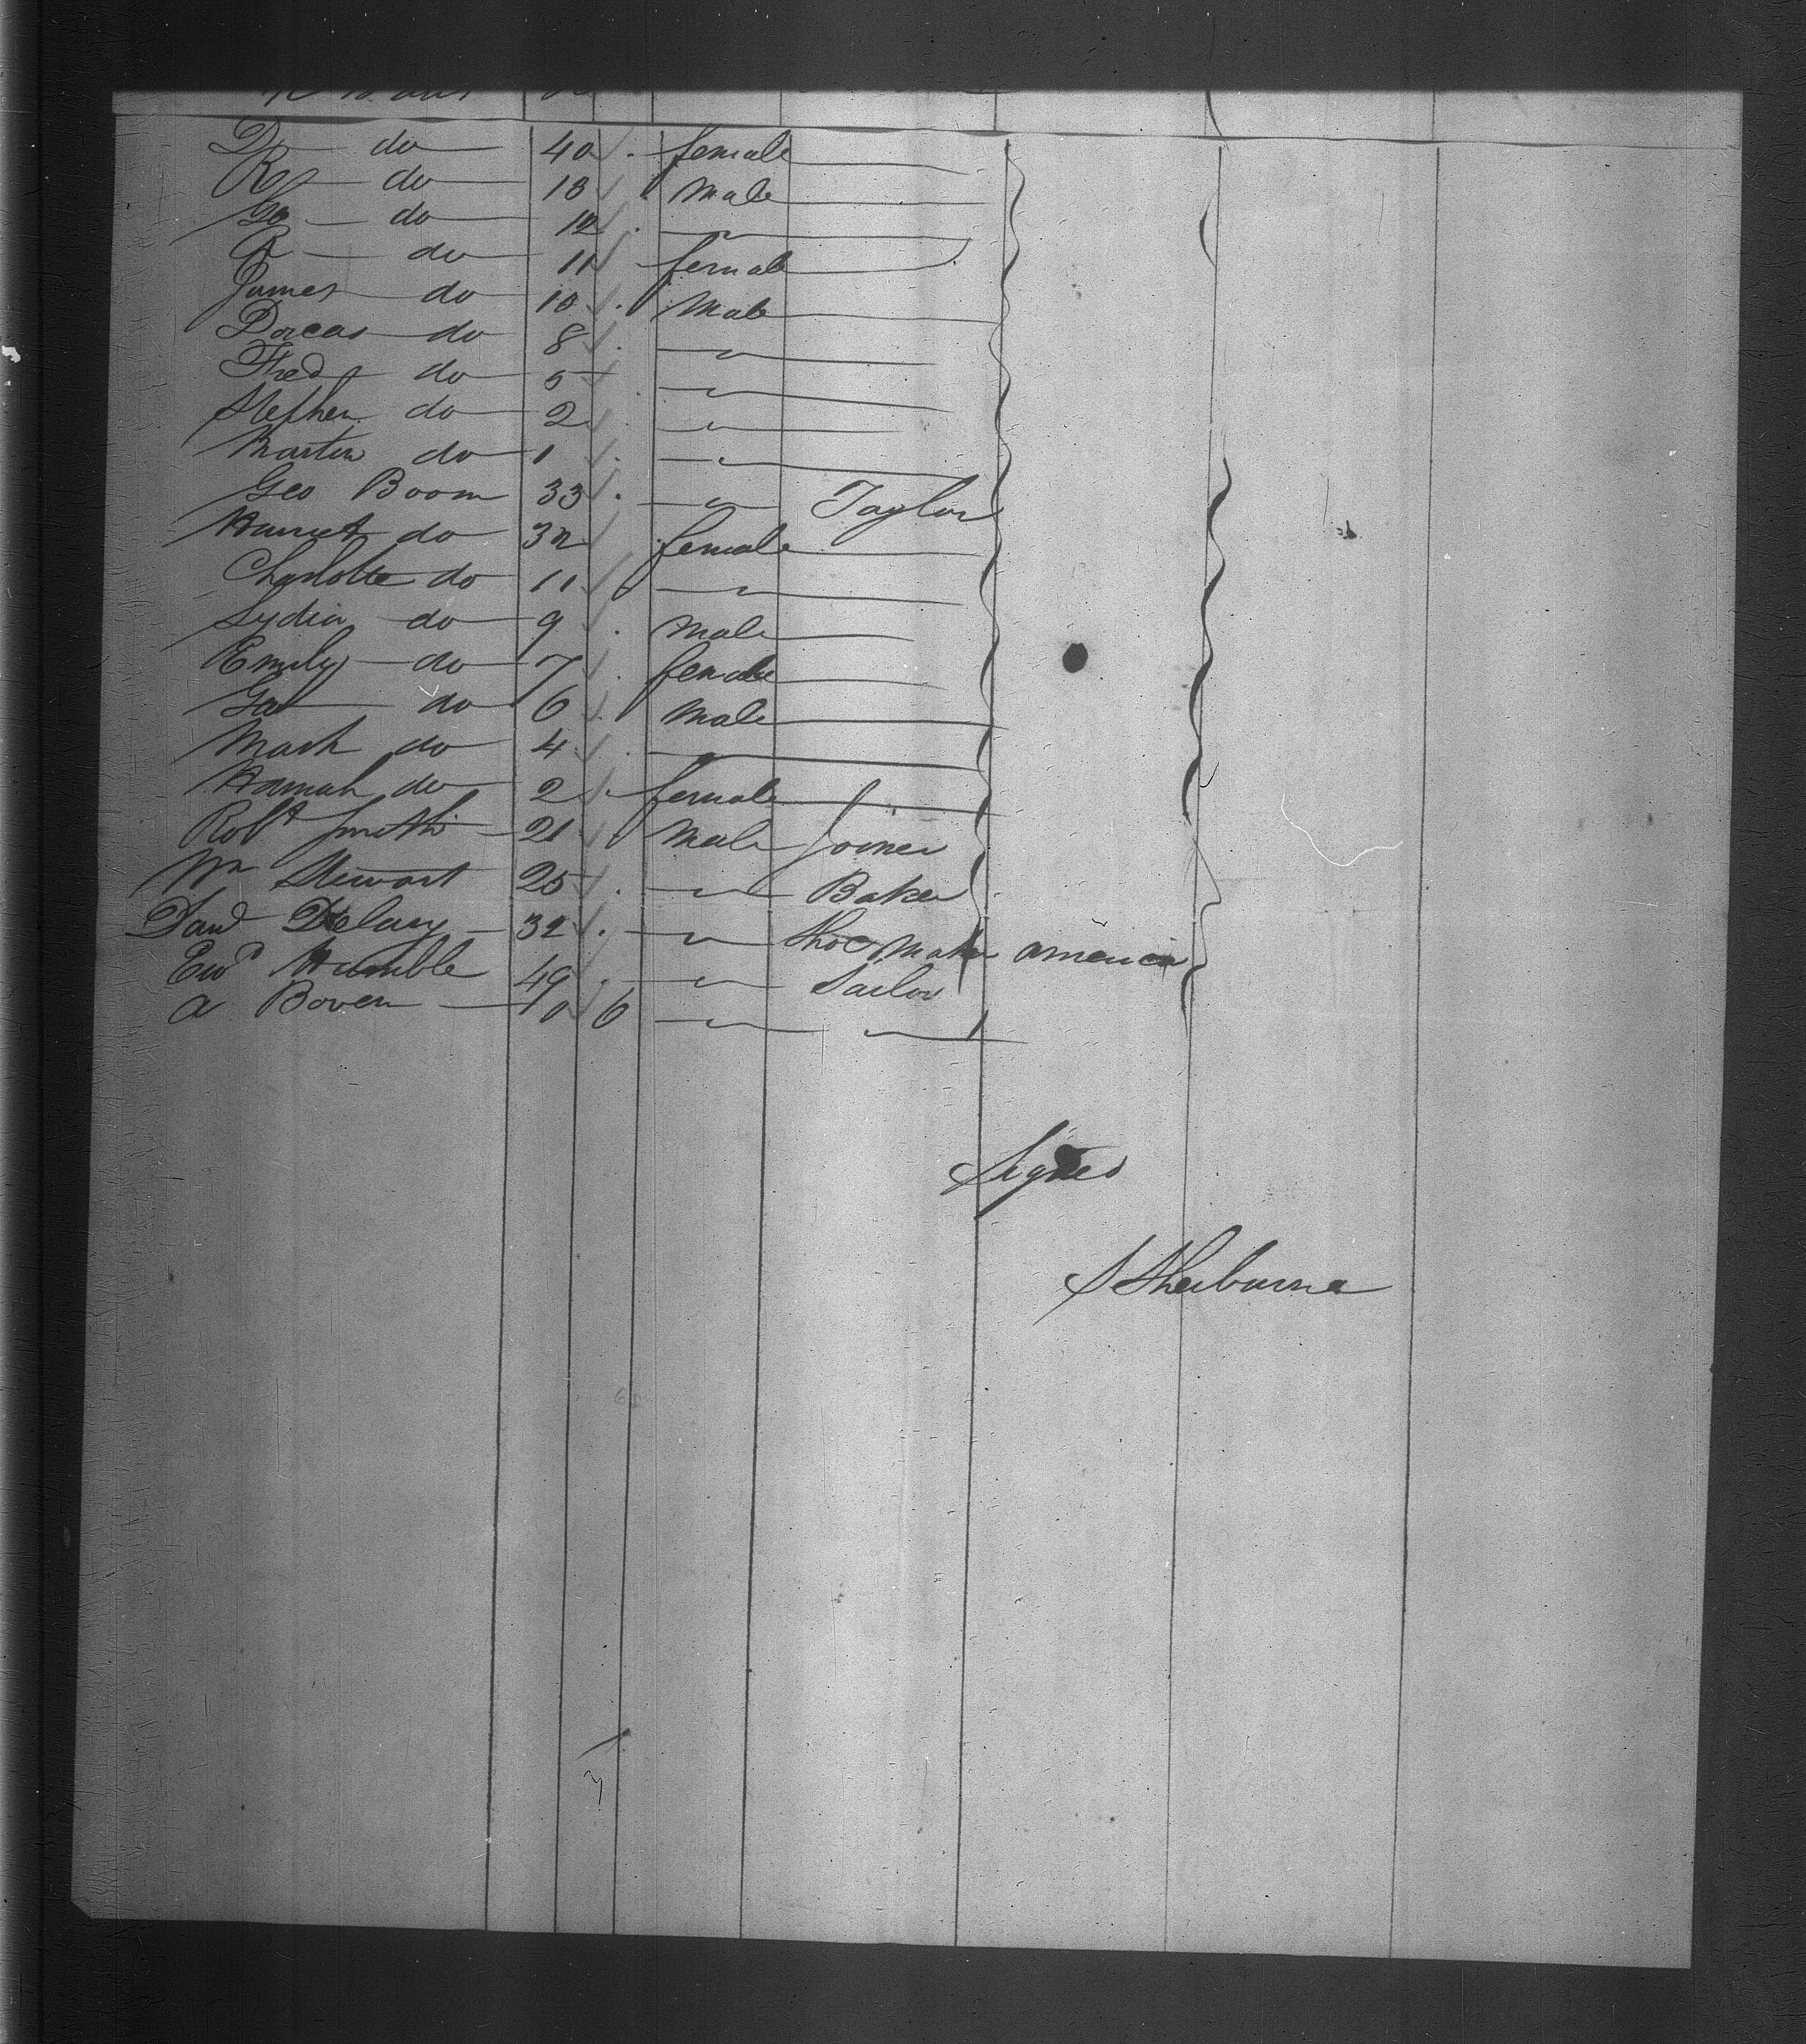 D do 40 female
R do 13 male
Go do 12 "
R do 11 female
James do 10 Male
Dorcas do 8 "
Fred do 5 "
Stephen do 2 "
Martin do 1 "
Geo Boom 33 " Taylor
Harriet do 32 female
Charlotte do 11 "
Lydia do 9 male
Emily do 7 female
do 6 male
Mark do 4 "
Hannah do 2 female
Robt Smith 21 Male Joiner
Wm Stewart 25 " Baker
Davd Delany 32 " Shoe Maker america
Ewd Humble 49 " Sailor
A Boven 10 6 " "
Signed
S Sherburne